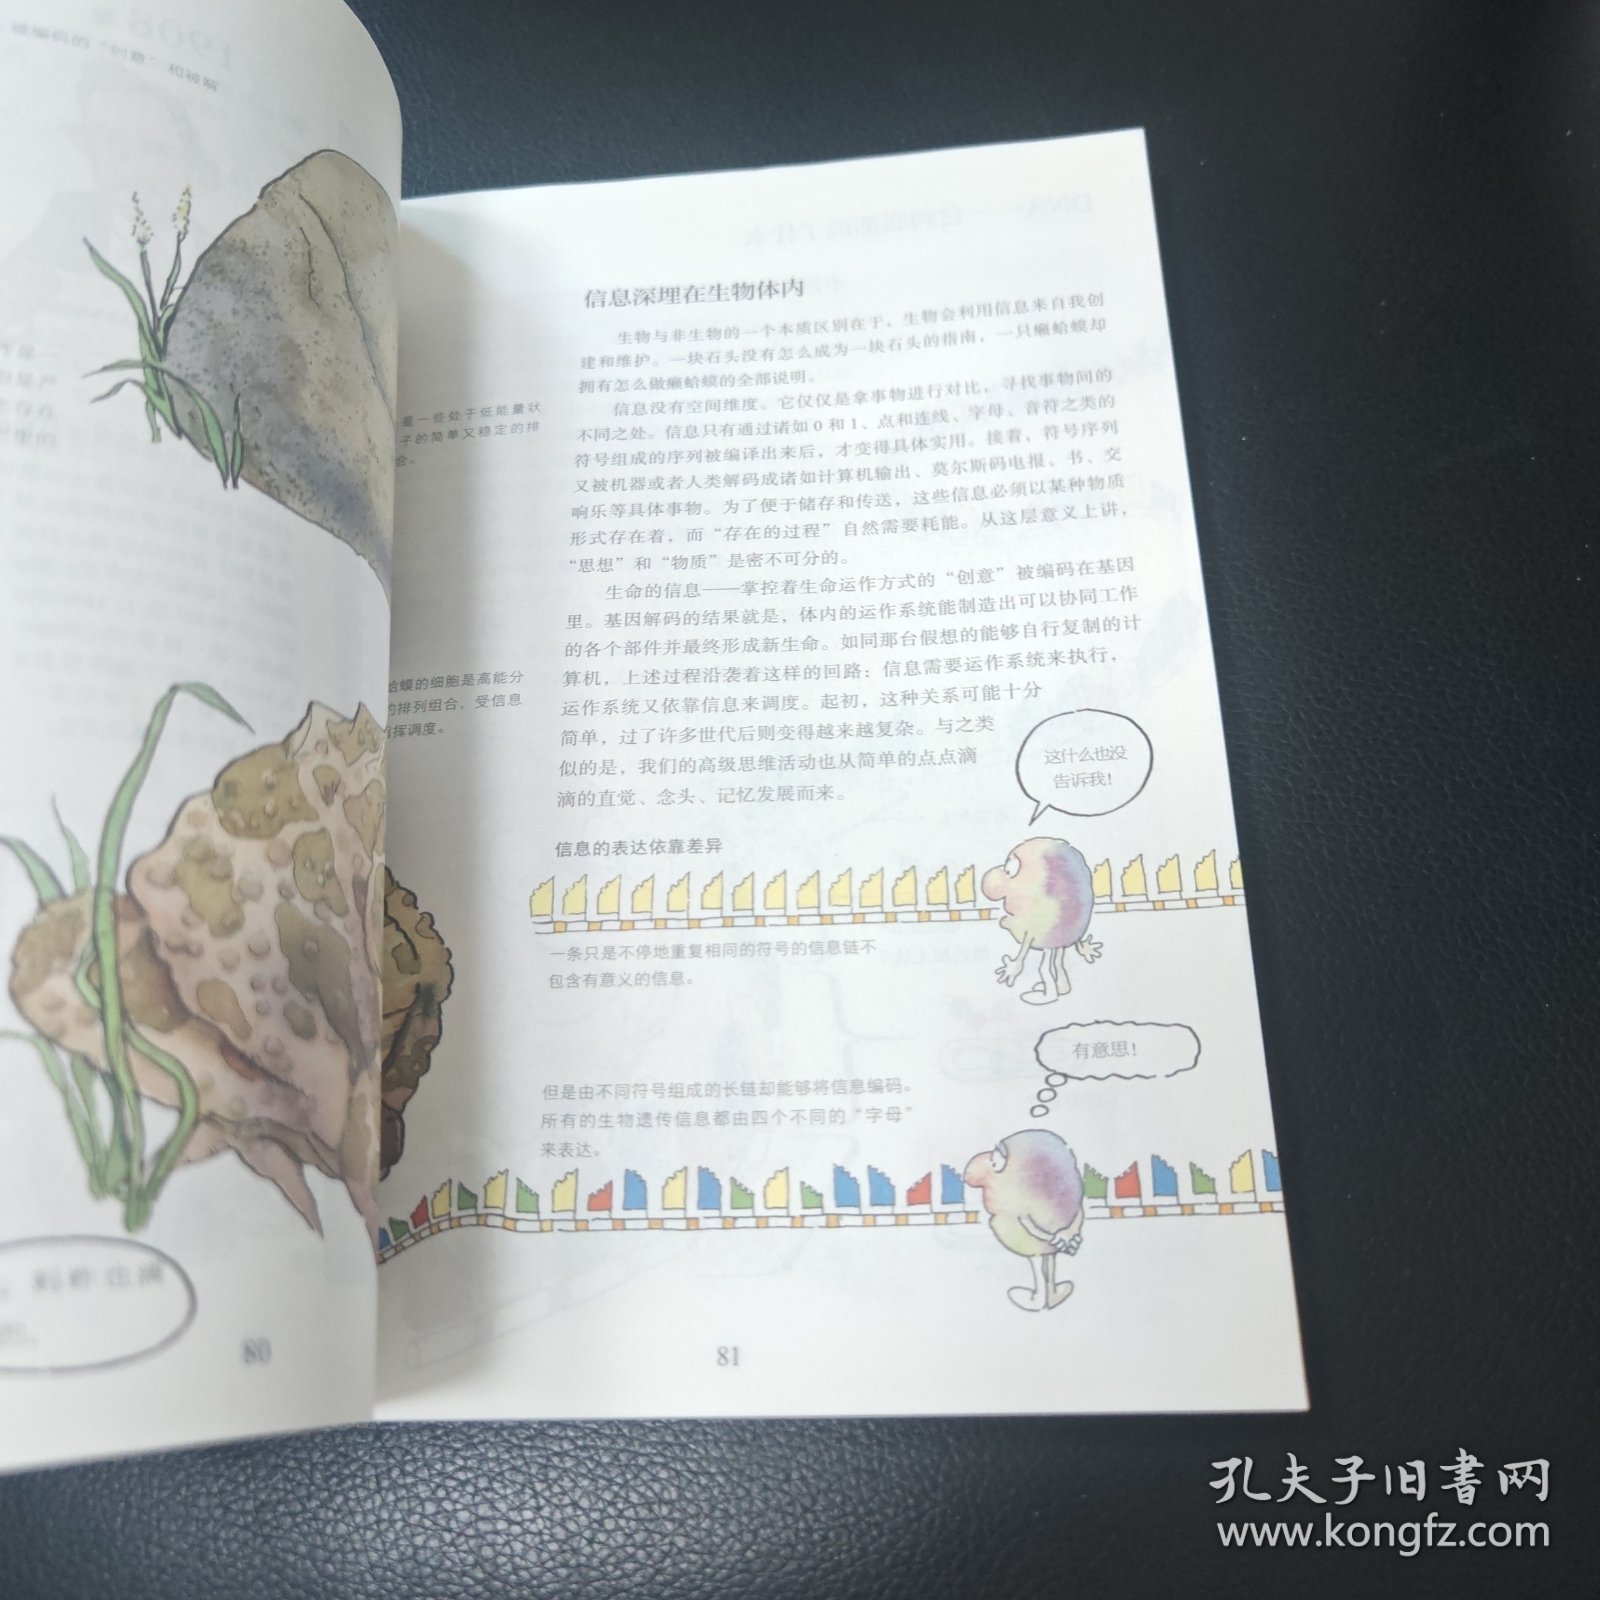 信息深埋在生物体内
生物与非生物的一个本质区别在于，生物会利用信息来自我创
建和维护。一块石头没有怎么成为一块石头的指南，一只癞蛤蟆却
拥有怎么做癞蛤蟆的全部说明。
信息没有空间维度。它仅仅是拿事物进行对比，寻找事物间的
不同之处。信息只有通过诸如 0 和 1、点和连线、字母、音符之类的
符号组成的序列被编译出来后，才变得具体实用。接着，符号序列
又被机器或者人类解码成诸如计算机输出、莫尔斯码电报、书、交
响乐等具体事物。为了便于储存和传送，这些信息必须以某种物质
形式存在着，而“存在的过程”自然需要耗能。从这层意义上讲，
“思想”和“物质”是密不可分的。
生命的信息——掌控着生命运作方式的“创意”被编码在基因
里。基因解码的结果就是，体内的运作系统能制造出可以协同工作
的各个部件并最终形成新生命。如同那台假想的能够自行复制的计
算机，上述过程沿袭着这样的回路：信息需要运作系统来执行，
运作系统又依靠信息来调度。起初，这种关系可能十分
简单，过了许多世代后则变得越来越复杂。与之类
似的是，我们的高级思维活动也从简单的点点滴
滴的直觉、念头、记忆发展而来。
是一些处于低能量状
子的简单又稳定的排
合。
蛤蟆的细胞是高能分
的排列组合，受信息
指挥调度。
这什么也没
告诉我！
信息的表达依靠差异
一条只是不停地重复相同的符号的信息链不
包含有意义的信息。
有意思！
但是由不同符号组成的长链却能够将信息编码。
所有的生物遗传信息都由四个不同的“字母”
来表达。
80
81
孔夫子旧书网
www.kongfz.com